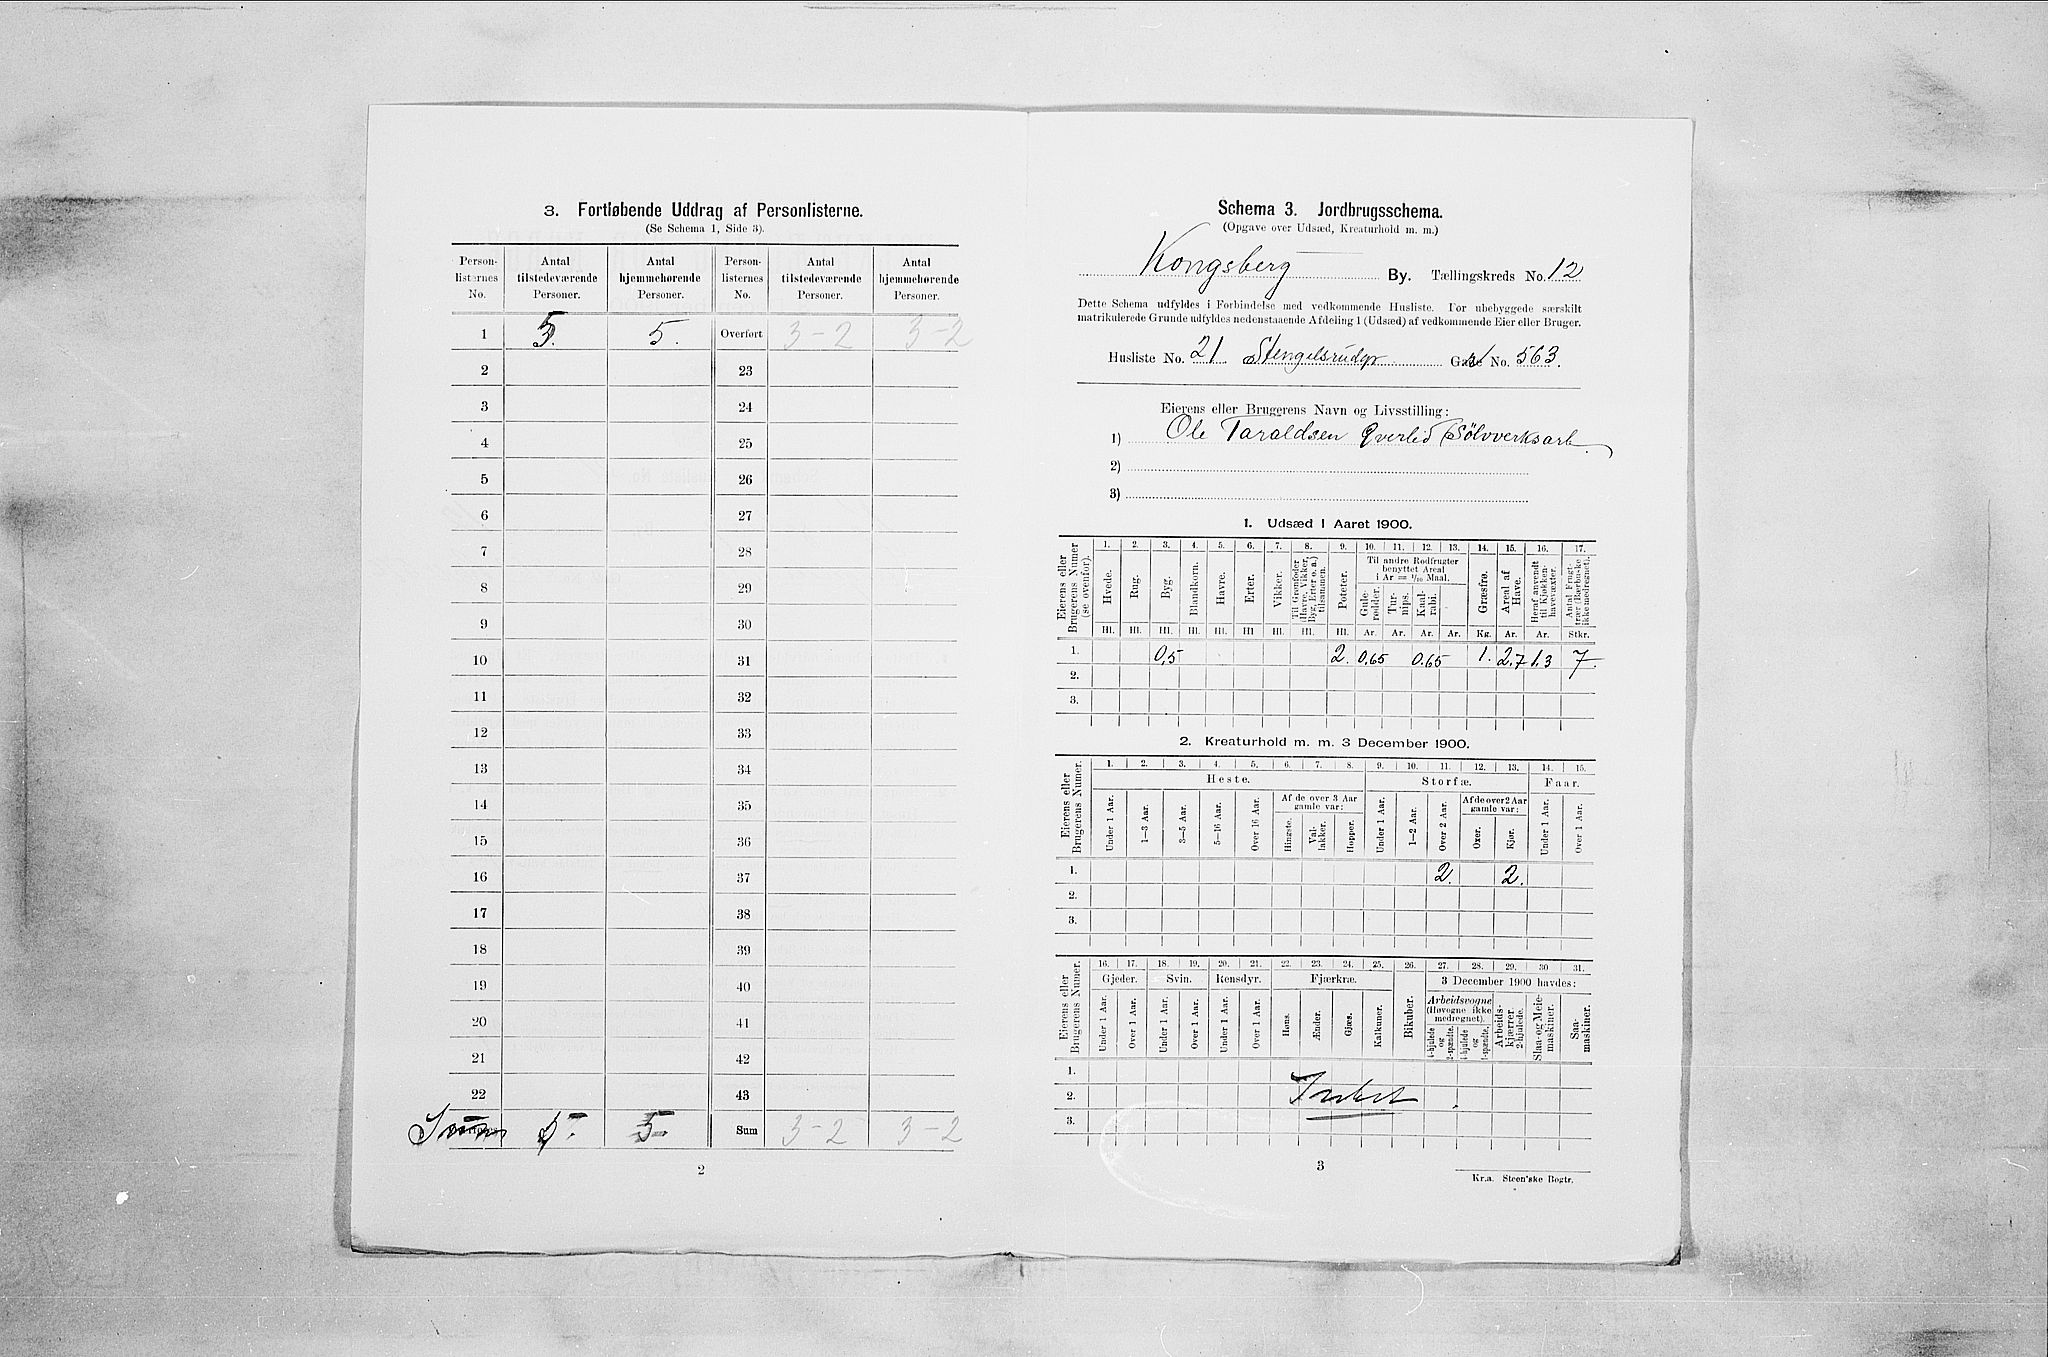 3. Fortløbende Uddrag af Personlisterne.
(Se Schema 1, Side 3).
Person-listernes No. | Antal tilstedeværende Personer. | Antal hjemmehørende Personer. | Person-listernes No. | Antal tilstedeværende Personer. | Antal hjemmehørende Personer.
1 | 5. | 5. | Overført | 3-2 | 3-2
2 | 23
3 | 24
4 | 25
5 | 26
6 | 27
7 | 28
8 | 29
9 | 30
10 | 31
11 | 32
12 | 33
13 | 34
14 | 35
15 | 36
16 | 37
17 | 38
18 | 39
19 | 40
20 | 41
21 | 42
22 | 43
Sum | 5. | 5 | Sum | 3-2 | 3-2
2
Schema 3. Jordbrugsschema.
(Opgave over Udsæd, Kreaturhold m. m.)
Kongsberg By. Tællingskreds No. 12
Dette Schema udfyldes i Forbindelse med vedkommende Husliste. For ubebyggede særskilt
matrikulerede Grunde udfyldes nedenstaaende Afdeling 1 (Udsæd) af vedkommende Eier eller Bruger.
Husliste No. 21 Stengelsrudgr Gade No. 563.
Eierens eller Brugerens Navn og Livsstilling:
1) Ole Taraldsen Qverlid (Sölvverksarb.
2)
3)
1. Udsæd i Aaret 1900.
Eierens eller Brugerens Numer (se ovenfor).
1. | 2. | 3. | 4. | 5. | 6. | 7. | 8. | 9. | 10. | 11. | 12. | 13. | 14. | 15. | 16. | 17.
Til andre Rodfrugter benyttet Areal i Ar = 1/10 Maal.
Hvede. | Rug. | Byg. | Blandkorn. | Havre. | Erter. | Vikker. | Til Grønfoder (Havre, Vikker, Byg, Erter o. a.) tilsammen. | Poteter. | Gule-rødder. | Tur-nips. | Kaal-rabi. | | Græsfrø. | Areal af Have. | Heraf anvendt til Kjøkken-havevæxter. | Antal Frugt-træer (Bærbuske ikke medregnet).
Hl. | Hl. | Hl. | Hl. | Hl. | Hl | Hl. | Hl. | Hl. | Ar. | Ar. | Ar. | Ar. | Kg. | Ar. | Ar. | Stkr.
1. | 0,5 | 2. | 0,65 | 0.65 | 1. | 2.7 | 1.3 | 7.
2.
3.
2. Kreaturhold m. m. 3 December 1900.
Eierens eller Brugerens Numer.
1. | 2. | 3. | 4. | 5. | 6. | 7. | 8. | 9. | 10. | 11. | 12. | 13. | 14. | 15.
Heste. | Storfæ. | Faar.
Af de over 3 Aar gamle var: | Af de over 2 Aar gamle var:
Under 1 Aar. | 1—3 Aar. | 3—5 Aar. | 5—16 Aar. | Over 16 Aar. | Hingste. | Val-lakker. | Hopper. | Under 1 Aar. | 1—2 Aar. | Over 2 Aar. | Oxer. | Kjør. | Under 1 Aar. | Over 1 Aar.
1. | 2. | 2.
2.
3.
Eierens eller Brugerens Numer.
16. | 17. | 18. | 19. | 20. | 21. | 22. | 23. | 24. | 25. | 26. | 27. | 28. | 29. | 30 | 31.
Gjeder. | Svin. | Rensdyr. | Fjærkræ. | Bikuber. | 3 December 1900 havdes:
Arbeidsvogne (Høvogne ikke medregnet).
Under 1 Aar. | Over 1 Aar. | Under 1 Aar. | Over 1 Aar. | Under 1 Aar. | Over 1 Aar. | Høns. | Ænder. | Gjæs. | Kalkuner. | 4-hjulede og 2-spændte. | 4-hjulede og 1-spændte. | Arbeids-kjærrer, 2-hjulede. | Slaa- og Meie-maskiner. | Saa-maskiner.
1.
2. Intet.
3.
3
Kr.a. Steen'ske Bogtr.